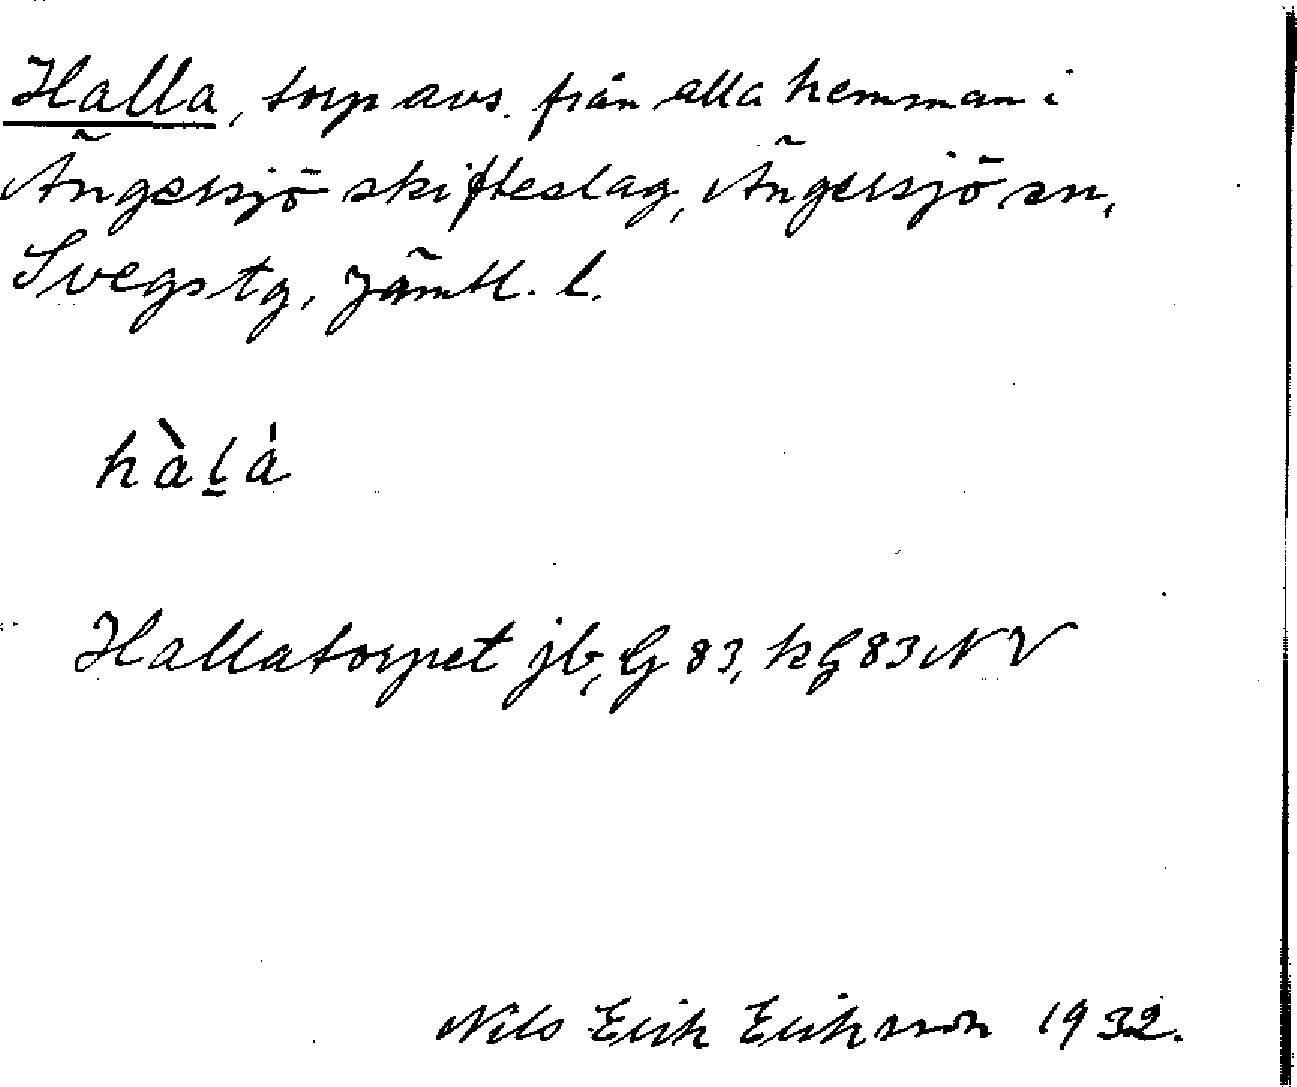 Halla, torp avs. från alla hemman i
Ängersjö skifteslag, Ängersjö sn,
Svegs tg, Jämtl. l.
hàl̠á
Hallatorpet jb, G 83, kG 83 NV
Nils Erik Eriksson 1932.